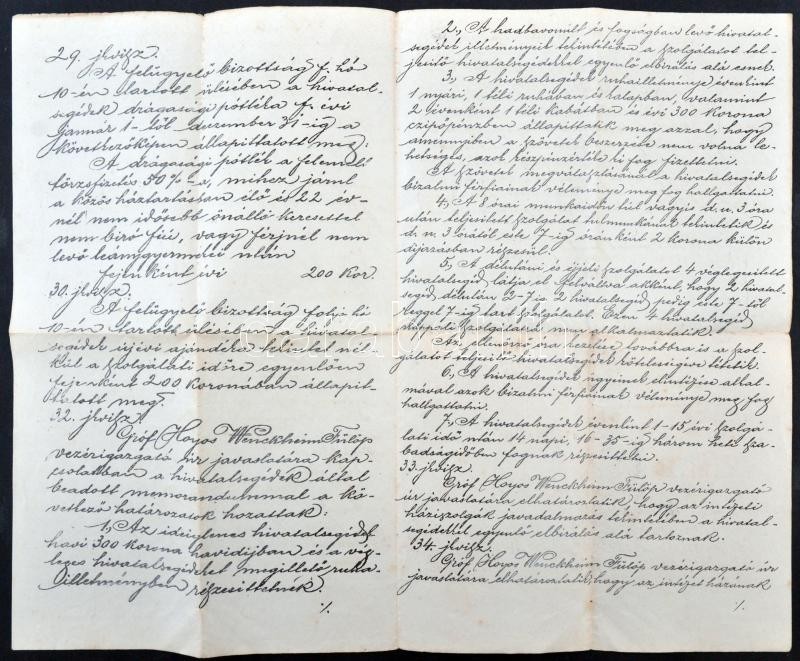 29. jkvisz.
A felügyelő bizottság f. hó
10-én tartott ülésében a hivatal-
segédek drágasági pótléka f. évi
január 1-től december 31-ig a
következőképen állapittatott meg:
A drágasági pótlék a felemelt
törzsfizetés 50%-a, mihez járul
a közös háztartásban élő és 22 év-
nél nem idősebb önálló keresettel
nem biró fiú, vagy férjnél nem
levő leánygyermekei után
fejenként évi 200 kor.
30. jkvisz.
A felügyelő bizottság folyó hó
10-én tartott ülésében a hivatal-
segédek ujévi ajándéka tekintet nél-
kül a szolgálati időre egyenlően
fejenként 200 koronában állapit-
tatott meg.
32. jkvisz.
Gróf Hoyos Wenckheim Fülöp
vezérigazgató úr javaslatára kap-
csolatban a hivatalsegédek által
beadott memorandummal a kö-
vetkező határozatok hozattak:
1., Az ideiglenes hivatalsegédek
havi 300 korona havidijban és a vég-
leges hivatalsegédeket megillető ruha-
illetményben részesittetnek.
./.
2., A hadbavonult és fogságban levő hivatal-
segédek illetményeik tekintetében a szolgálatot tel-
jesitő hivatalsegédekkel egyenlő elbirálás alá esnek.
3., A hivatalsegédek ruhailletménye évenkint
1 nyári, 1 téli ruhában és kalapban, valamint
2 évenként 1 téli kabátban és évi 300 korona
czipőpénzben állapittatik meg azzal, hogy
amennyiben a szövetek beszerzése nem volna le-
hetséges, azok készpénzértéke ki fog fizettetni.
A szövetek megválasztásánál a hivatalsegédek
bizalmi férfiainak véleménye meg fog hallgattatni.
4., A 8 órai munkaidőn túl vagyis d. u. 3 óra
után teljesitett szolgálat túlmunkának tekintetik és
d. u. 3 órától este 7-ig óránként 2 korona külön
dijazásban részesül.
5., A délutáni és éjjeli szolgálatot 4 véglegesitett
hivatalsegéd látja el felváltva akként, hogy 2 hivatal-
segéd délután 2-7 ig 2 hivatalsegéd pedig este 7-től
reggel 7-ig tart szolgálatot. Ezen 4 hivatalsegéd
nappali szolgálatra nem alkalmaztatik.
Az ellenőrző óra kezelése továbbra is a szol-
gálatot teljesitő hivatalsegédek kötelességévé tétetik.
6., A hivatalsegédek ügyeinek elintézése alkal-
mával azok bizalmi férfiainak véleménye meg fog
hallgattatni.
7., A hivatalsegédek évenkint 1-15 évi szolgá-
lati idő után 14 napi, 16-35-ig három heti sza-
badságidőben fognak részesittetni.
33. jkvisz.
Gróf Hoyos Wenckheim Fülöp vezérigazgató
úr javaslatára elhatároztatik, hogy az intézeti
háziszolgák javadalmazás tekintetében a hivatal-
segédekkel egyenlő elbirálás alá tartoznak.
34. jkvisz.
Gróf Hoyos Wenckheim Fülöp vezérigazgató úr
javaslatára elhatároztatik, hogy az intézet házának
./.